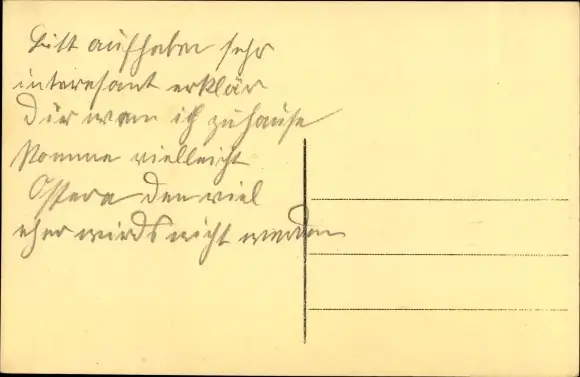 Bitt aufheben sehr
interesant erklär
Dir wen ich zuhause
komme vielleicht
Ostern den viel
eher wirds nicht werden